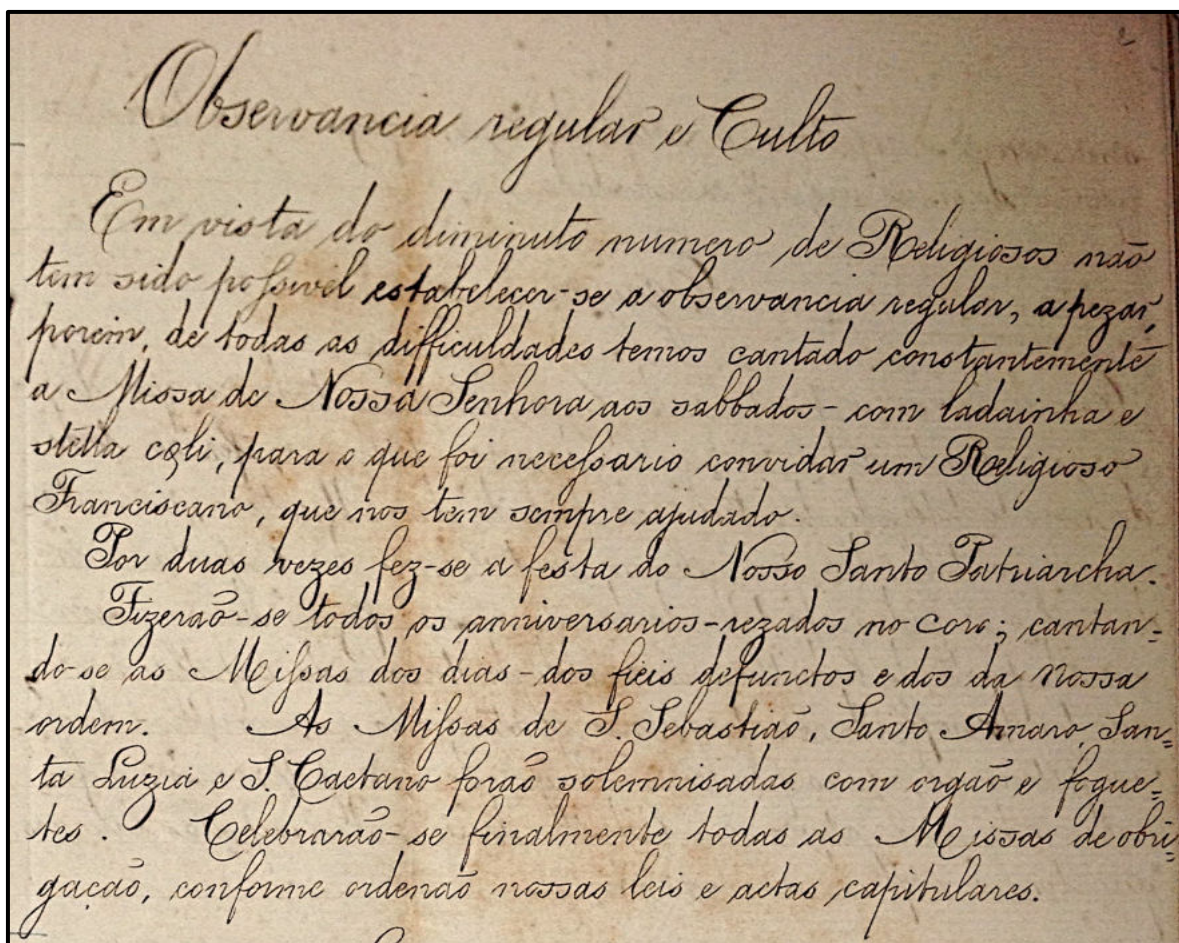 Observancia regular e Culto
Em vista do diminuto numero de Religiosos não
tem sido possivel estabelecer-se a observancia regular, a pezar,
porém, de todas as difficuldades temos cantado constantemente
a Missa de Nossa Senhora aos sabbados - com ladainha e
stella cęli, para o que foi necessario convidar um Religioso
Franciscano, que nos tem sempre ajudado.
Por duas vezes fez-se a festa do Nosso Santo Patriarcha.
Fizerão-se todos os anniversarios-rezados no coro; cantan-
do-se as Missas dos dias - dos fieis defunctos e dos da nossa
ordem. As Missas de S. Sebastião, Santo Amaro, San=
ta Luzia e S. Caetano forão solemnisadas com orgão e fogue=
tes. Celebrarão-se finalmente todas as Missas de obri-
gação, conforme ordenão nossas leis e actas capitulares.